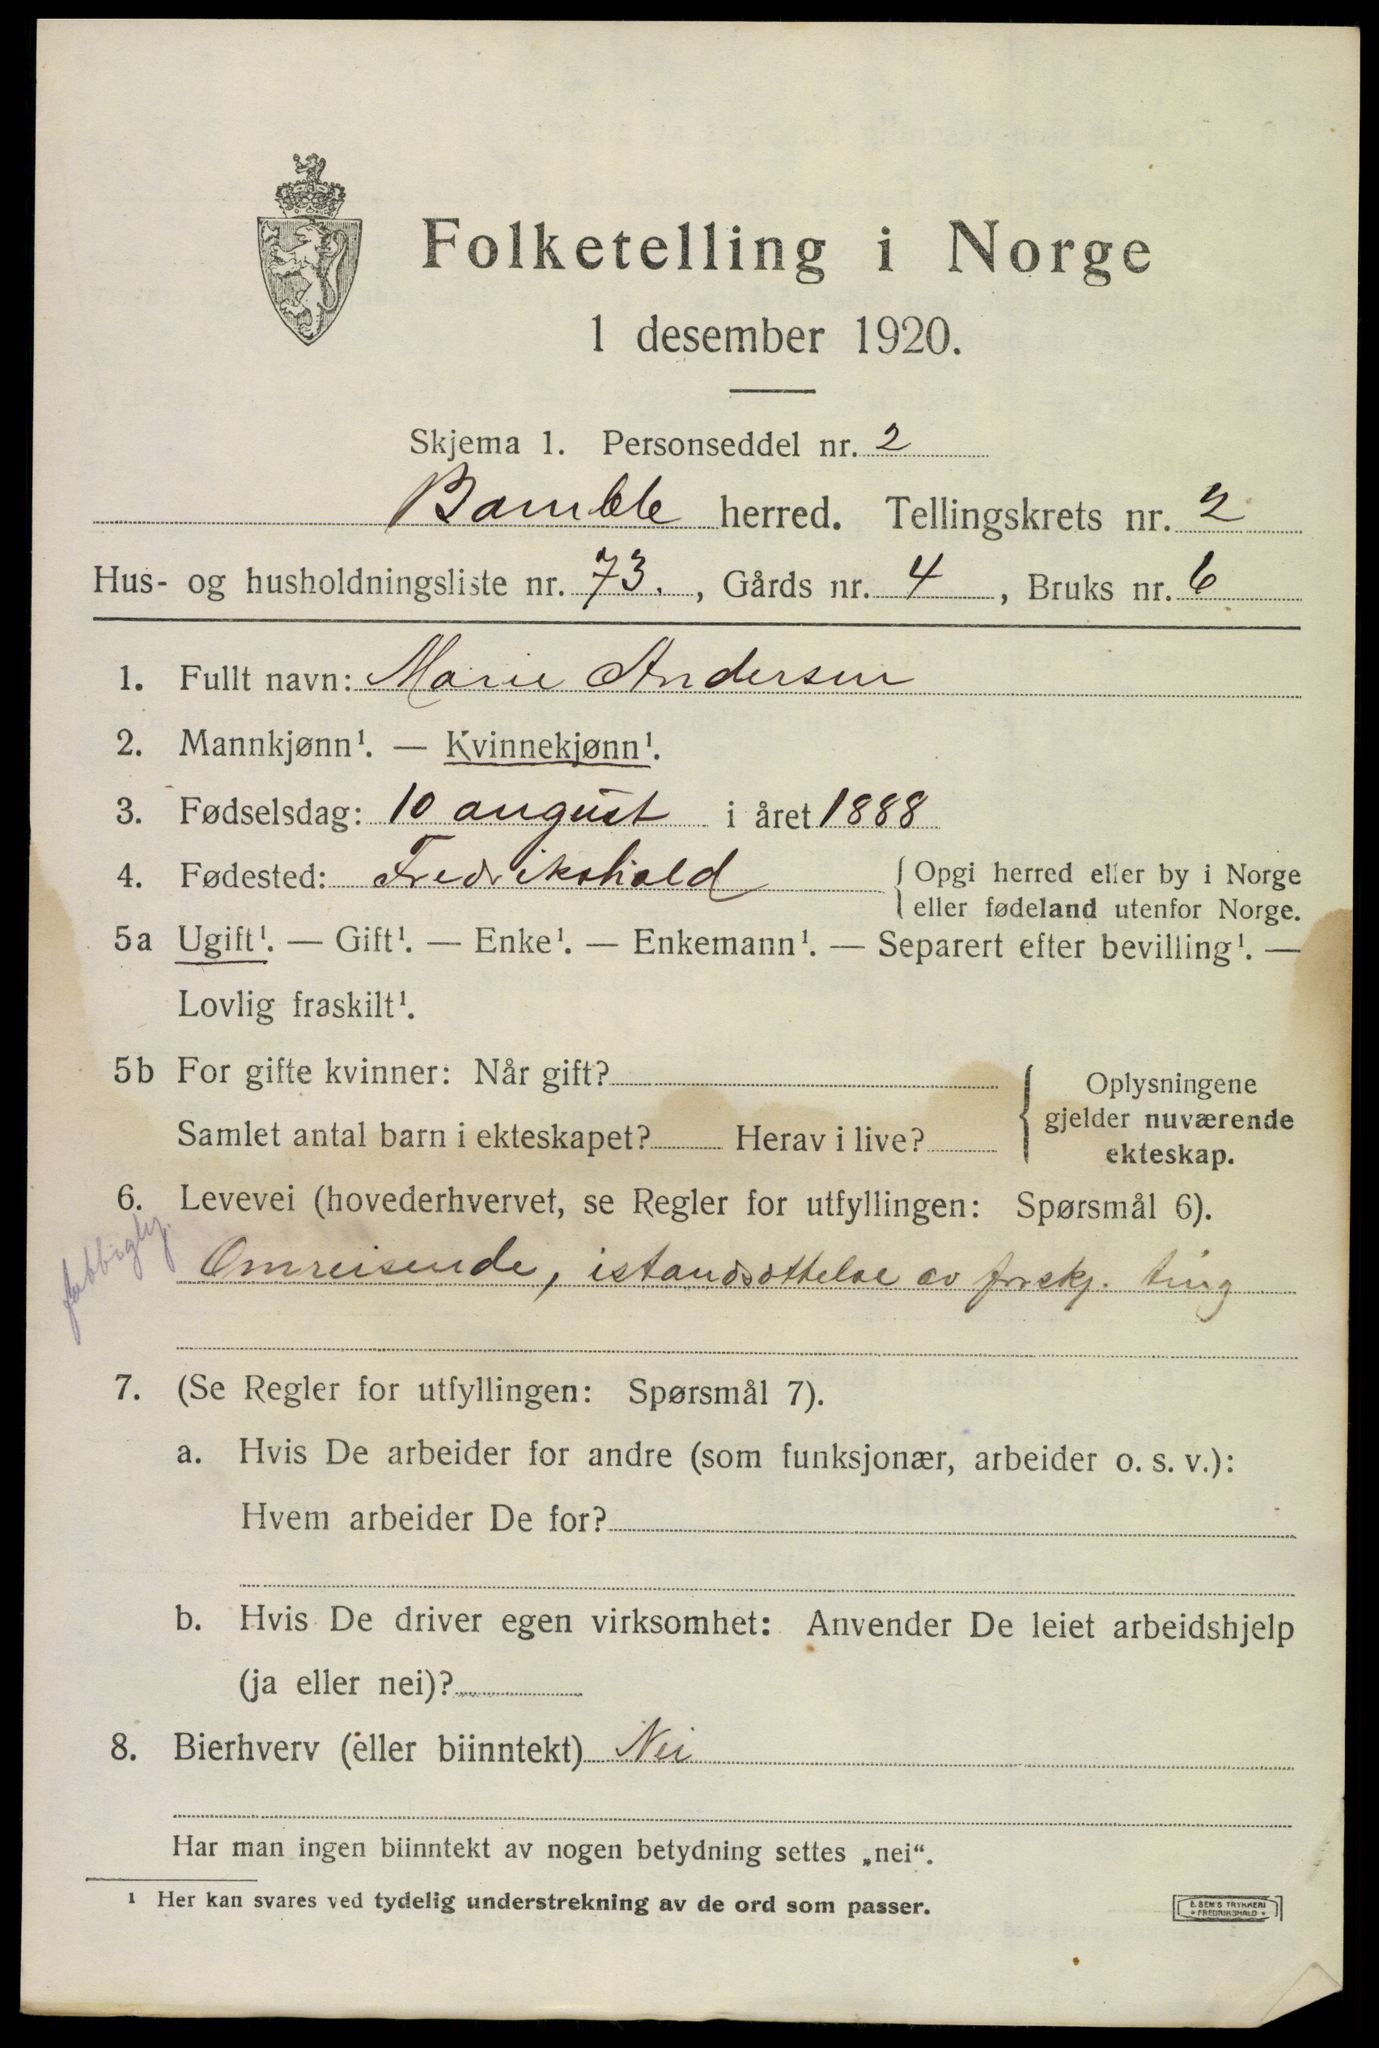 Folketelling i Norge
1 desember 1920.
Skjema 1. Personseddel nr. 2
Bamble herred. Tellingskrets nr. 2
Hus- og husholdningsliste nr. 73. , Gårds nr. 4 , Bruks nr. 6
1. Fullt navn: Marie Andersen
2. Mannkjønn¹. — Kvinnekjønn¹.
3. Fødselsdag: 10 august i året 1888
4. Fødested: Fredrikshald { Opgi herred eller by i Norge
eller fødeland utenfor Norge.
5a Ugift¹. — Gift¹. — Enke¹. — Enkemann¹. — Separert efter bevilling¹. —
Lovlig fraskilt¹.
5b For gifte kvinner: Når gift?
Samlet antal barn i ekteskapet? Herav i live?
{ Oplysningene
gjelder nuværende
ekteskap.
6. Levevei (hovederhvervet, se Regler for utfyllingen: Spørsmål 6).
Omreisende, istandsættelse av forskj. ting
7. (Se Regler for utfyllingen: Spørsmål 7).
a. Hvis De arbeider for andre (som funksjonær, arbeider o. s. v.):
Hvem arbeider De for?
b. Hvis De driver egen virksomhet: Anvender De leiet arbeidshjelp
(ja eller nei)?
8. Bierhverv (eller biinntekt) Nei
Har man ingen biinntekt av nogen betydning settes „nei“.
¹ Her kan svares ved tydelig understrekning av de ord som passer.
E. SEM'S TRYKKERI
* FREDRIKSHALD *